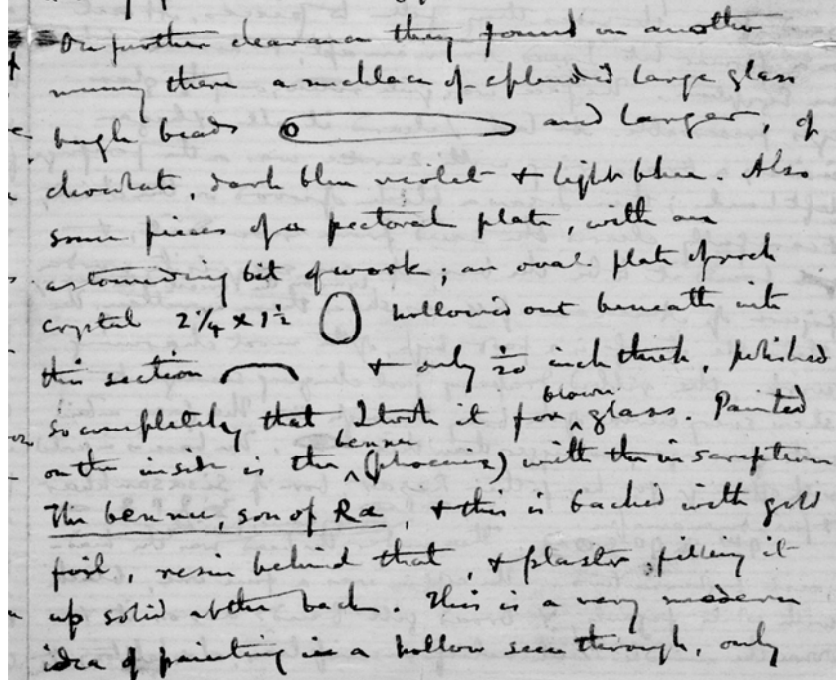 On further clearance they found on another
mummy there a necklace of splendid large glass
bugle beads and larger, of
chocolate, dark blue violet & light blue. Also
some pieces of a pectoral plate, with an
astounding bit of work; an oval plate of rock
crystal 2¼ × 1½ hollowed out beneath into
this section & only 1/20 inch thick, polished
so completely that I took it for blown glass. Painted
on the inside is the bennu (phoenix) with the inscription
The bennu, son of Ra, & this is backed with gold
foil, resin behind that, & plaster filling it
up solid at the back. This is a very modern
idea of painting in a hollow seen through, only